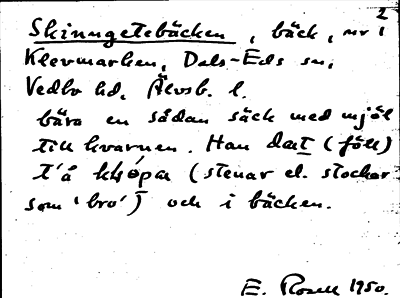 2
Skinngetebäcken, bäck, nr i
Klevmarken, Dals-Eds sn,
Vedbo hd, Älvsb. l.
bära en sådan säck med mjöl
till kvarnen. Han dat (föll)
t'å (stenar el. stockar
som 'bro') och i bäcken.
E. Rosell 1950.